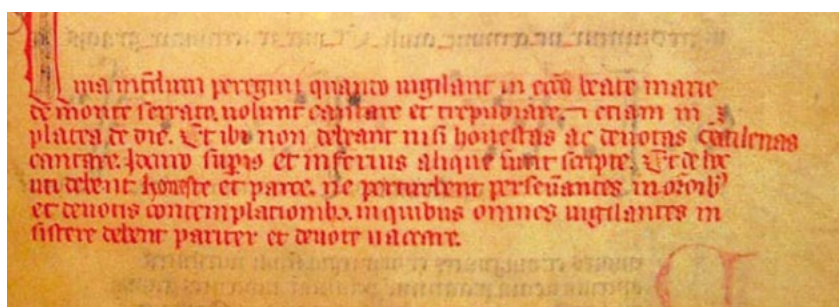 uia int̄dum peregrini quando uigilant in ecc̄a beate marie
de mōnte serrato. uolunt cantare et trepudiare. ⁊ etiam in
platea de die. Et ibi non debeant nisi honestas ac deuotas cātilenas
cantare. sup̄ius et inferius alique sunt scripte. Et de hoc
uti debent honeste et parce. ne perturbent perseu̓antes in or̄onib⁹
et deuotis contemplationib⁹. in quibus omnes uigilantes in
sistere debent pariter et deuote uaccare.